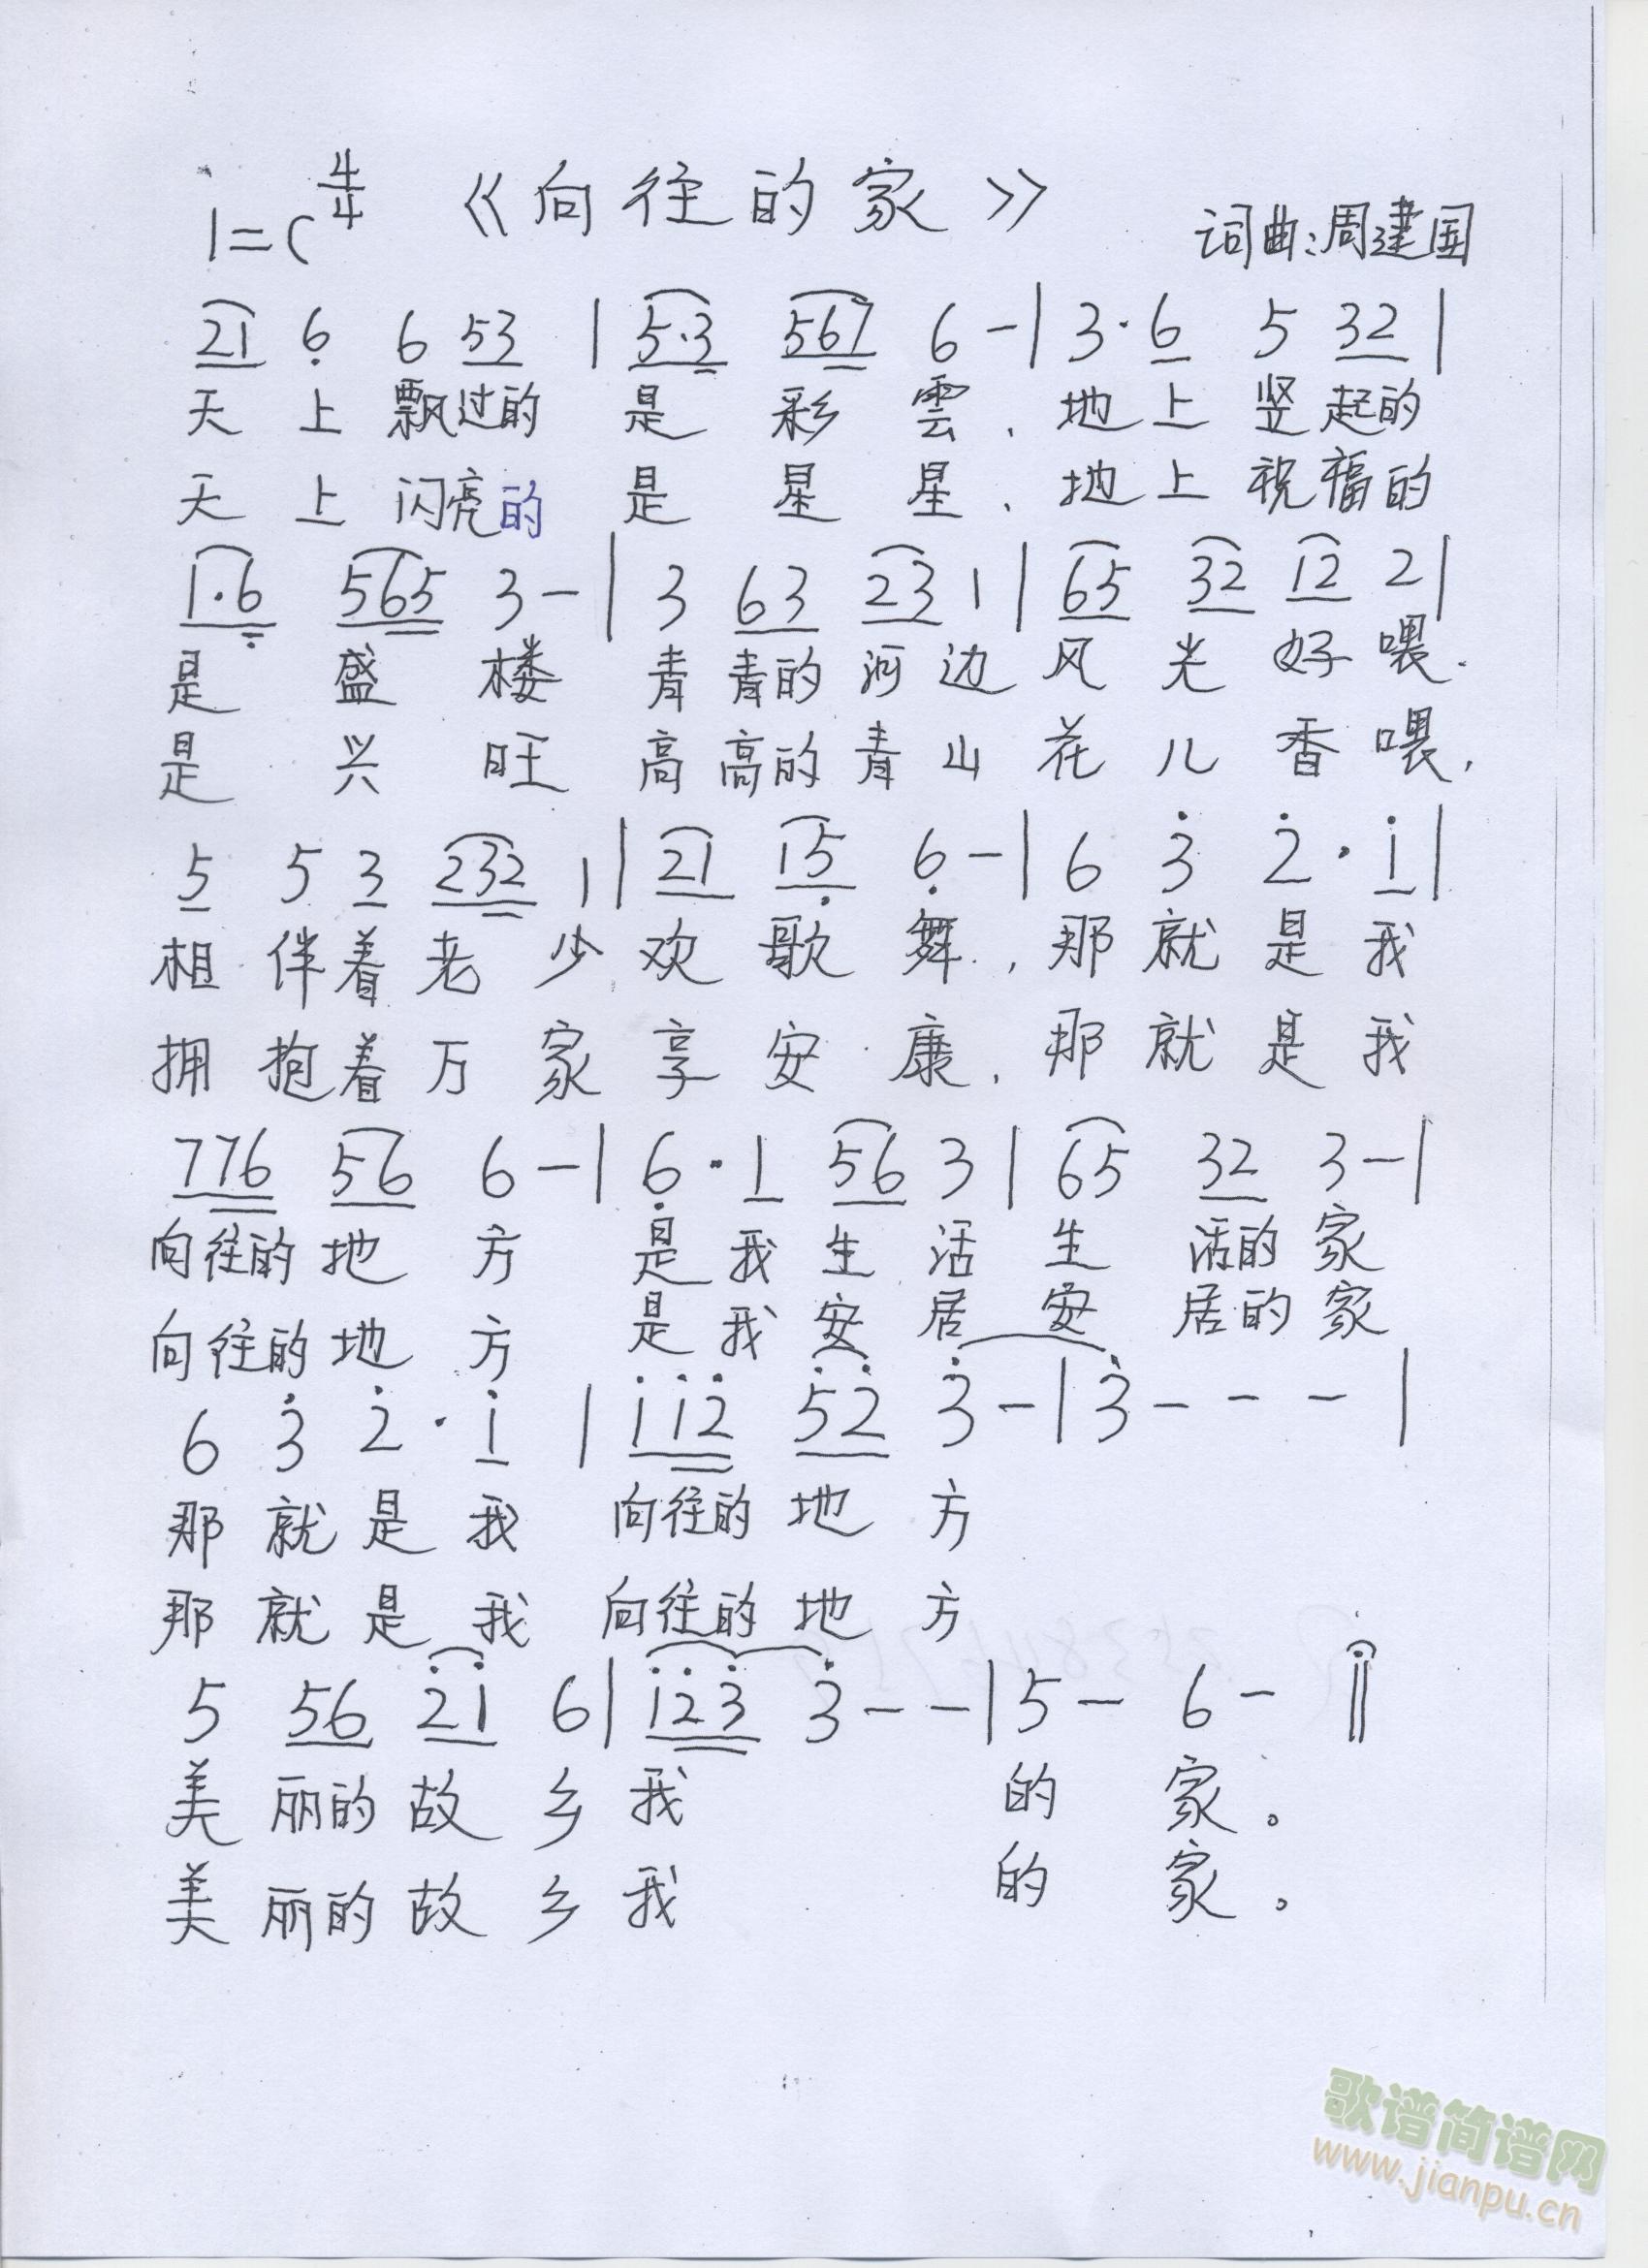 1=C 4/4 《向往的家》
词曲:周建国
21 6 6 53 | 5·3 567 6 - | 3·6 5 32 |
天上飘过的是彩雲、地上竖起的
天上闪亮的是星星、地上祝福的
1·6 565 3 - | 3 63 23 1 | 65 32 12 2 |
是盛楼青青的河边风光好喂.
是兴旺高高的青山花儿香喂,
5 5 3 232 1 | 21 15 6 - | 6 3 2·1 |
相伴着老少欢歌舞.,那就是我
拥抱着万家享安康,那就是我
776 56 6 - | 6·1 56 3 | 65 32 3 - |
向往的地方是我生活生活的家
向往的地方是我安居安居的家
6 3 2·1 | 112 52 3 - | 3 - - - |
那就是我向往的地方
那就是我向往的地方
5 56 21 6 | 123 3 - - | 5 - 6 - ‖
美丽的故乡我的家。
美丽的故乡我的家。
歌谱简谱网
www.jianpu.cn